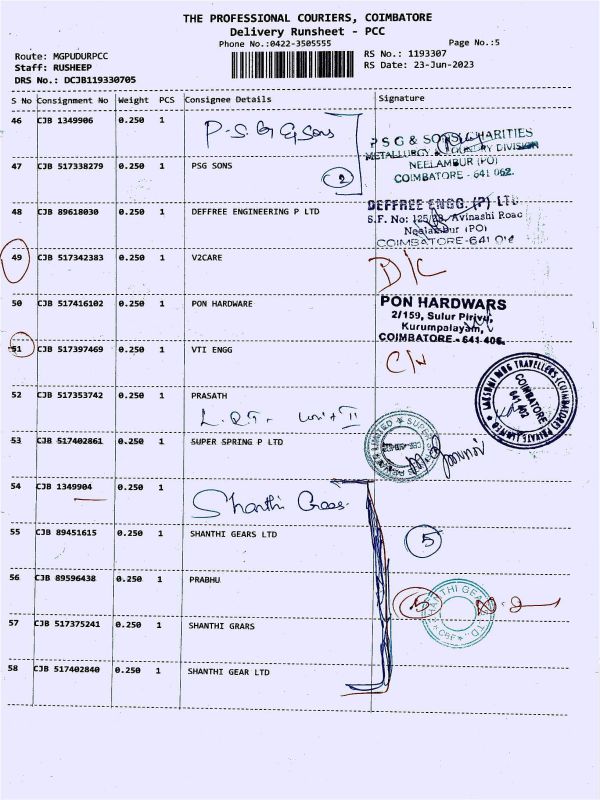 THE PROFESSIONAL COURIERS, COIMBATORE
Delivery Runsheet - PCC
Phone No.:0422-3505555
Page No.:5
Route: MGPUDURPCC
RS No.: 1193307
Staff: RUSHEEP
RS Date: 23-Jun-2023
DRS No.: DCJB119330705
S No Consignment No Weight PCS Consignee Details Signature
46 CJB 1349906 0.250 1 P.S.G & Sons
PSG & SONS CHARITIES
METALLURGY & FOUNDRY DIVISION
NEELAMBUR (PO)
COIMBATORE - 641 062.
47 CJB 517338279 0.250 1 PSG SONS
2
48 CJB 89618030 0.250 1 DEFFREE ENGINEERING P LTD
DEFFREE ENGG. (P) LTD
S.F. No: Avinashi Road
Neelambur (PO)
COIMBATORE-641
49 CJB 517342383 0.250 1 V2CARE
D/C
50 CJB 517416102 0.250 1 PON HARDWARE
PON HARDWARS
2/159, Sulur Pirivu,
Kurumpalayam,
COIMBATORE - 641 406.
51 CJB 517397469 0.250 1 VTI ENGG
52 CJB 517353742 0.250 1 PRASATH
LAKSHMI TRAVELLERS (COIMBATORE) PRIVATE LIMITED
COIMBATORE
641 402
Unit II
53 CJB 517402861 0.250 1 SUPER SPRING P LTD
54 CJB 1349904 0.250 1 Shanthi Gears
55 CJB 89451615 0.250 1 SHANTHI GEARS LTD
5
56 CJB 89596438 0.250 1 PRABHU
5
57 CJB 517375241 0.250 1 SHANTHI GRARS
58 CJB 517402840 0.250 1 SHANTHI GEAR LTD